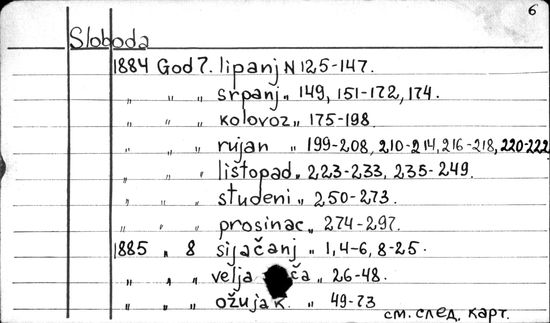 6
Sloboda
1884 God 7. lipanj N 125-147.
„ „ „ srpanj „ 149, 151-172, 174.
„ „ „ kolovoz „ 175-198.
„ „ „ rujan „ 199-208, 210-214, 216-218, 220-222
„ „ „ listopad „ 223-233, 235-249.
„ „ „ studeni „ 250-273.
„ „ „ prosinac „ 274-297.
1885 „ 8 siječanj „ 1, 4-6, 8-25.
„ „ „ velja ča „ 26-48.
„ „ „ ožujak. „ 49-73
см. след. карт.